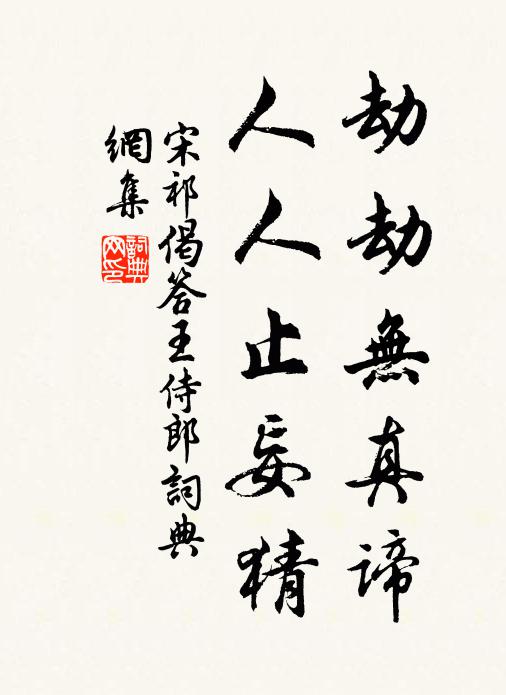 劫劫無真諦
人人止妄猜
宋祁偈答王侍郎詞典
網集
詞典
网印